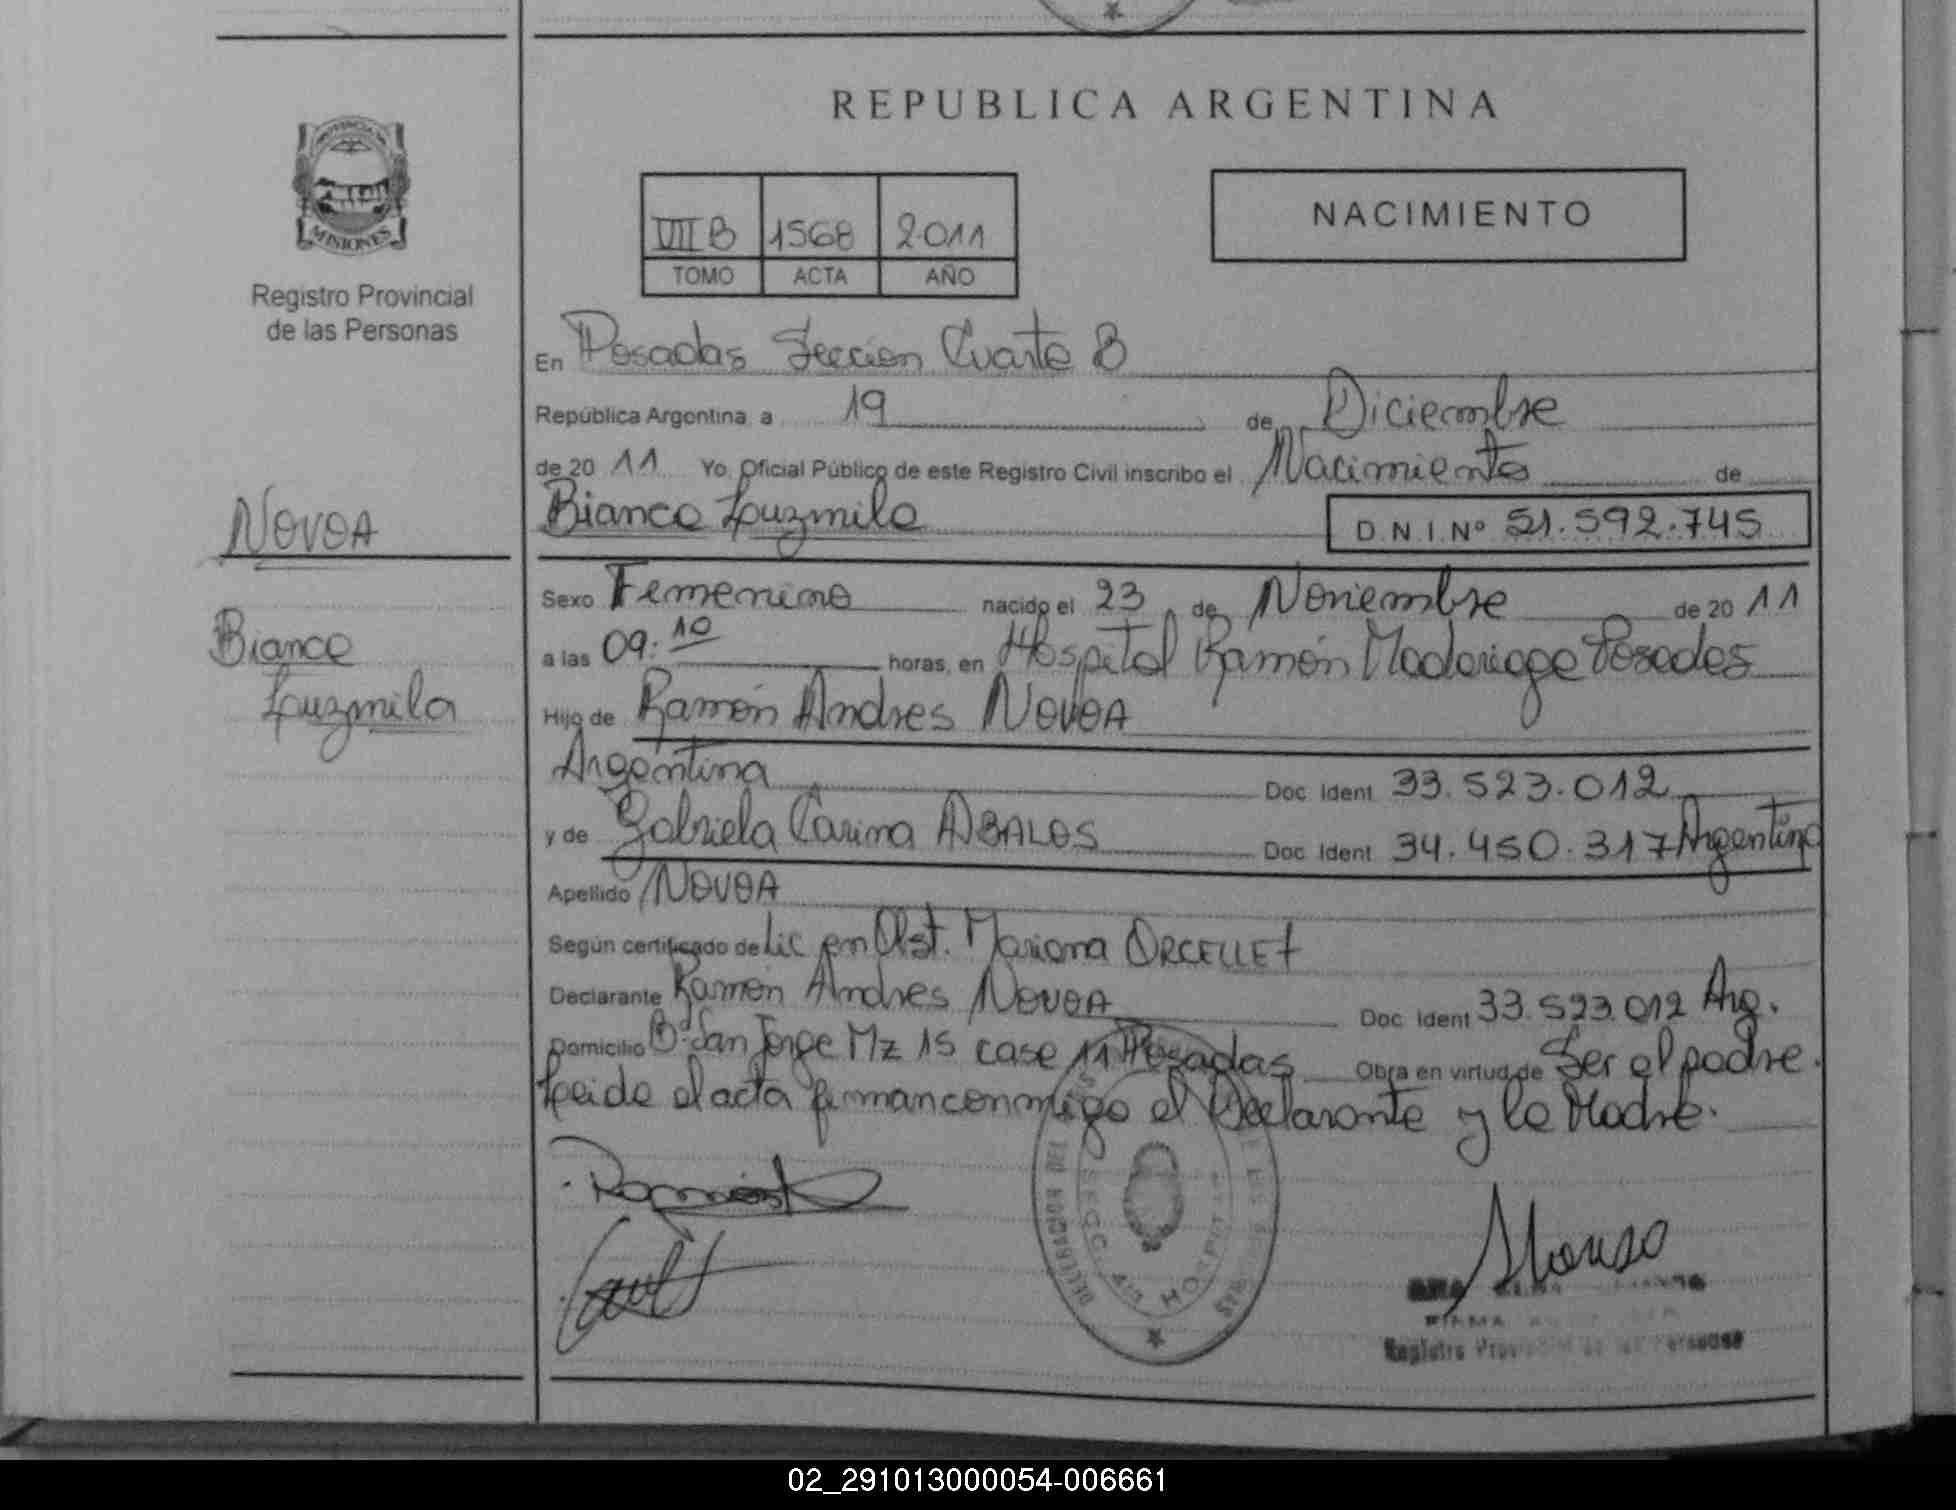 REPUBLICA ARGENTINA
PROVINCIA DE
MISIONES
Registro Provincial
de las Personas
VII B 1568 2011
TOMO ACTA AÑO
NACIMIENTO
En Posadas Seccion Cuarta B
República Argentina, a 19 de Diciembre
de 20 11 Yo, Oficial Público de este Registro Civil inscribo el Nacimiento de
Bianca Luzmila D.N.I. Nº 51.592.745
NOVOA
Bianca
Luzmila
Sexo Femenino nacido el 23 de Noviembre de 20 11
a las 09:10 horas, en Hospital Ramón Madariaga Posadas
Hijo de Ramón Andres NOVOA
Argentina Doc Ident 33.523.012
y de Gabriela Carina ABALOS Doc Ident 34.450.317 Argentina
Apellido NOVOA
Según certificado de Lic en Obst. Mariana ORCELLET
Declarante Ramón Andres NOVOA Doc Ident 33.523.012 Arg.
Domicilio Bº San Jorge Mz 15 casa 11 Posadas Obra en virtud de Ser el padre.
Leida el acta firman conmigo el Declarante y la Madre.
Ramón
SECC. 4ta HOSPITAL
Registro Provincial de las Personas
02_291013000054-006661